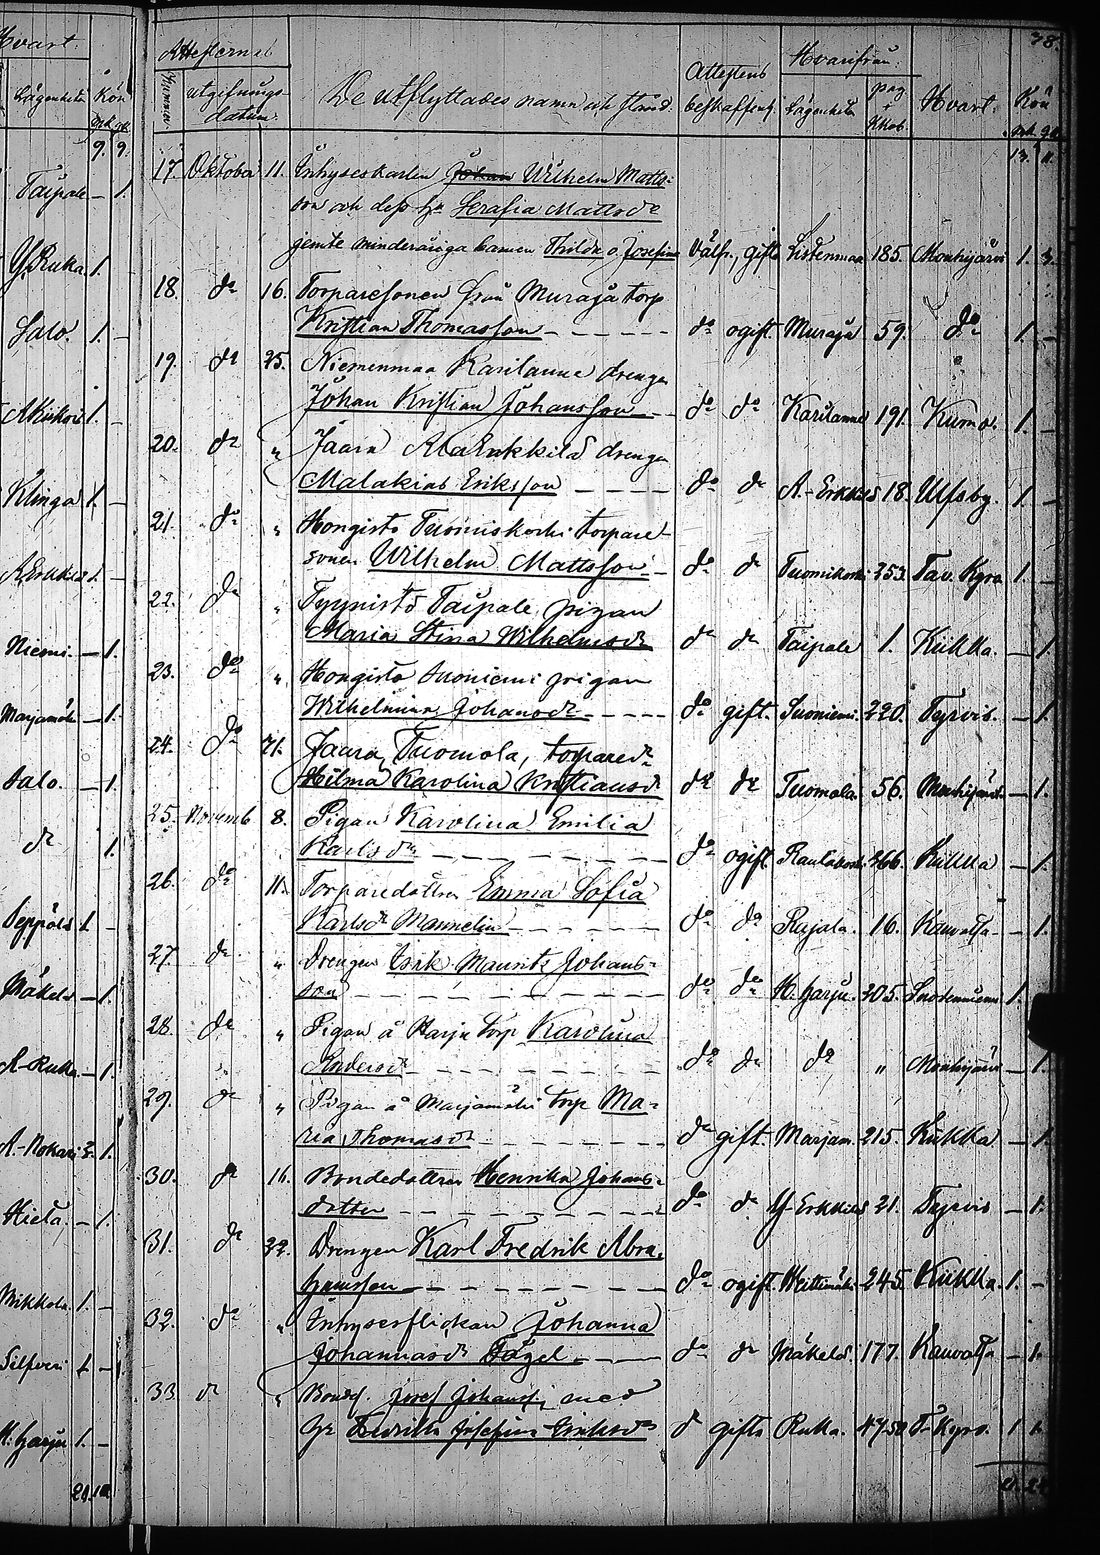 Hvart.
Lägenheten Kön
9. 9.
Taipale — 1.
Y. Ruka. 1.
Salo. 1. —
1. —
Klinga 1. —
A Erkkilä 1. —
Niemi. — 1.
Marjamäki — 1.
Salo. — 1.
dr 1.
Seppälä 1. —
Mäkelä — 1.
A-Ruka. — 1.
A.-Rokari 2. 1.
Hieta, — 1.
Mikkola. 1. —
H. Harju 1. —
78.
Attesternas Attestens Hvarifrån. Kön
Nummer utgifnings datum. De utflyttades namn och stånd. beskaffenh. Lägenheten pag i Kkob. Hvart. mk. qk.
13. 11.
17. Oktober 11. Inhyseskarlen Johan Wilhelm Matts-
son och dess h:u Serafia Mattsdr
jemte minderåriga barnen Thilda o. Josefina Välfr., gifta Listenmaa 185. Mouhijärvi 1. 3.
18. do 16. Torparesonen från Muraja torp
Kristian Thomasson — do ogift. Muraja 59. do 1. —
19. do 25. Niemenmaa Karilanne drengen
Johan Kristian Johansson — do do Karilanne 191. Kumo. 1. —
20. do " Jaara Ala Erkkilä drengen
Malakias Eriksson — do do A.-Erkkilä 18. Ulfsby. 1. —
21. do " Hongisto Tuomiskoski torpare-
sonen Wilhelm Mattsson — do do Tuomikoski 253. Tav. Kyro 1. —
22. do " Tyynistö Taipale pigan
Maria Stina Wilhelmsdr do do Taipale 1. Kiikka. — 1.
23. do " Hongisto Suoniemi pigan
Wilhelmina Johansdr — do gift. Suoniemi. 220. Tyrvis. — 1.
24. do 21. Jaara, Tuomola, torparedr
Hilma Karolina Kristiansdr do do Tuomola 56. Mouhijärvi — 1.
25. Novemb 8. Pigan Karolina Emilia
Karlsdr — do ogift. 266. Kiikka — 1.
26. do 11. Torparedottren Emma Sofia
Karlsdr Mannelin — do do Rajala. 16. Kauvatsa — 1.
27. do " Drengen Isak Maurits Johans-
son — do do H. Harju. 205. Suodenniemi 1.
28. do " Pigan å Harju torp Karolina
Andersdr — do do do " Mouhijärvi — 1.
29. do " Pigan å Marjamäki torp Ma-
ria Thomasdr — do gift. Marjam. 215. Kiikka — 1.
30. do 16. Bondedottren Henrika Johans-
dotter — do do Y-Erkkilä 21. Tyrvis — 1.
31. do 22. Drengen Karl Fredrik Abra-
hamsson — do ogift. 245. Kiikka. 1. —
32. do " Inhysesflickan Johanna
Johannasdr Fågel. — do do Mäkelä. 177. Kauvatsa — 1.
33. do " Bondes. Josef Johanss. med
h:u Fredrika Josefina Eriksdr do gifta Ruka. 47. 50 T-Kyro. 1 1.